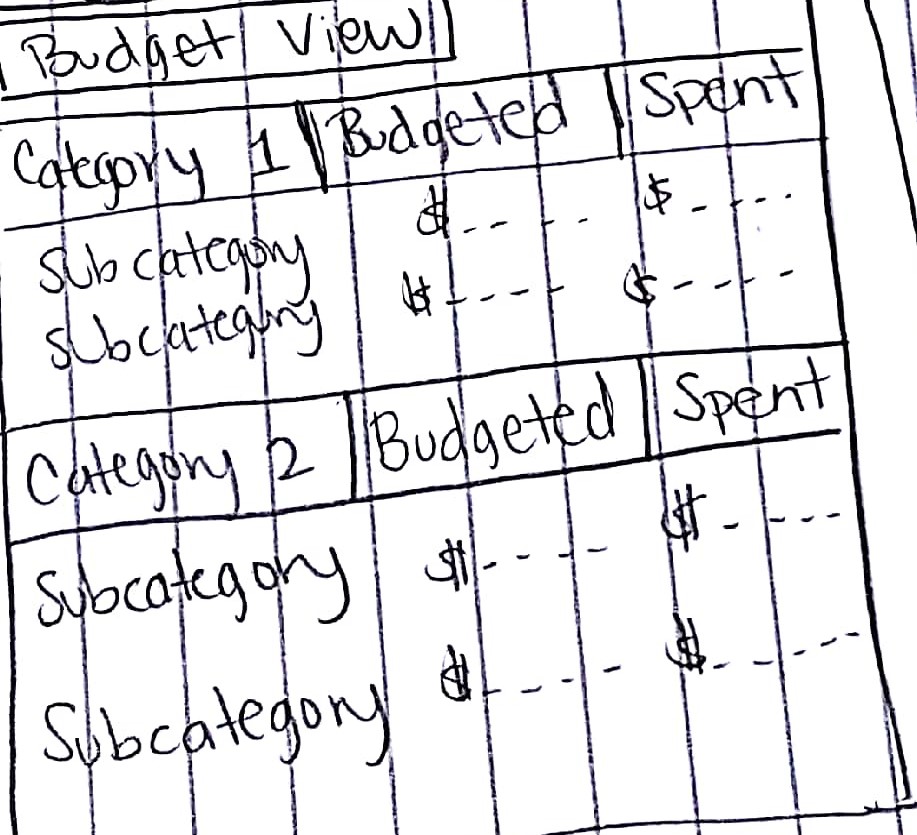 Budget View
Category 1 Budgeted Spent
Subcategory $---- $----
Subcategory $---- $----
Category 2 Budgeted Spent
Subcategory $---- $----
Subcategory $---- $----